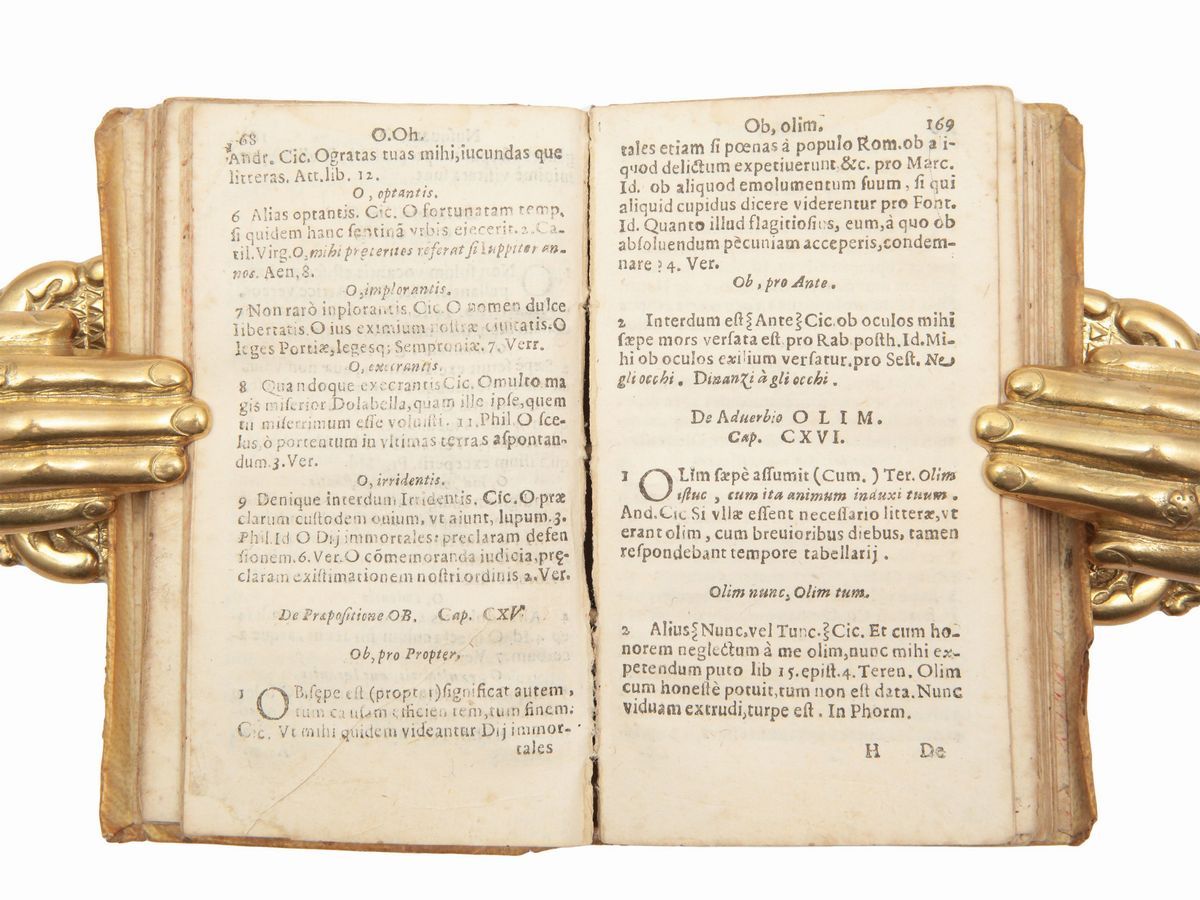 168 O.Oh.
Andr. Cic. O gratas tuas mihi,iucundas que
litteras. Att.lib. 12.
O, optantis.
6 Alias optantis. Cic. O fortunatam temp.
si quidem hanc sentinã vrbis eiecerit.2.Ca-
til.Virg.O,mihi pręteritos referat si Iuppiter an-
nos. Aen,8.
O,implorantis.
7 Non rarò inplorantis.Cic.O nomen dulce
libertatis.O ius eximium nostræ ciuitatis.O
leges Portiæ,legesq; Semproniæ.7.Verr.
O, execrantis.
8 Quandoque execrantis Cic. O multo ma
gis miserior Dolabella,quam ille ipse,quem
tu miserrimum esse voluisti. 11.Phil.O sce-
lus,ò portentum in vltimas terras aspontan-
dum.3.Ver.
O, irridentis.
9 Denique interdum Irridentis. Cic.O præ
clarum custodem ouium, vt aiunt, lupum.3.
Phil.Id O Dij immortales: preclaram defen
sionem.6.Ver.O cõmemoranda iudicia,prę-
claram existimationem nostri ordinis 2.Ver.
De Præpositione OB. Cap. CXV.
Ob,pro Propter,
1 OB.sępe est (propter)significat autem,
tum causam efficientem,tum finem.
Cic. Vt mihi quidem videantur Dij immor-
tales
Ob, olim. 169
tales etiam si pœnas à populo Rom.ob ali-
quod delictum expetiuerunt,&c. pro Marc.
Id. ob aliquod emolumentum suum, si qui
aliquid cupidus dicere viderentur pro Font.
Id. Quanto illud flagitiosius, eum,à quo ob
absoluendum pècuniam acceperis,condem-
nare ? 4. Ver.
Ob, pro Ante.
2 Interdum est ξ Ante ξ Cic.ob oculos mihi
sæpe mors versata est pro Rab posth.Id.Mi-
hi ob oculos exilium versatur.pro Sest. Ne
gli occhi. Dinanzi à gli occhi.
De Aduerbio OLIM.
Cap. CXVI.
1 OLim sæpè assumit (Cum.) Ter. Olim
istuc, cum ita animum induxi tuum.
And.Cic Si vllæ essent necessario litteræ,vt
erant olim, cum breuioribus diebus, tamen
respondebant tempore tabellarij.
Olim nunc, Olim tum.
2 Alius ξ Nunc,vel Tunc. ξ Cic. Et cum ho-
norem neglectum à me olim,nunc mihi ex-
petendum puto lib 15.epist.4. Teren. Olim
cum honestè potuit,tum non est data.Nunc
viduam extrudi,turpe est. In Phorm.
H De